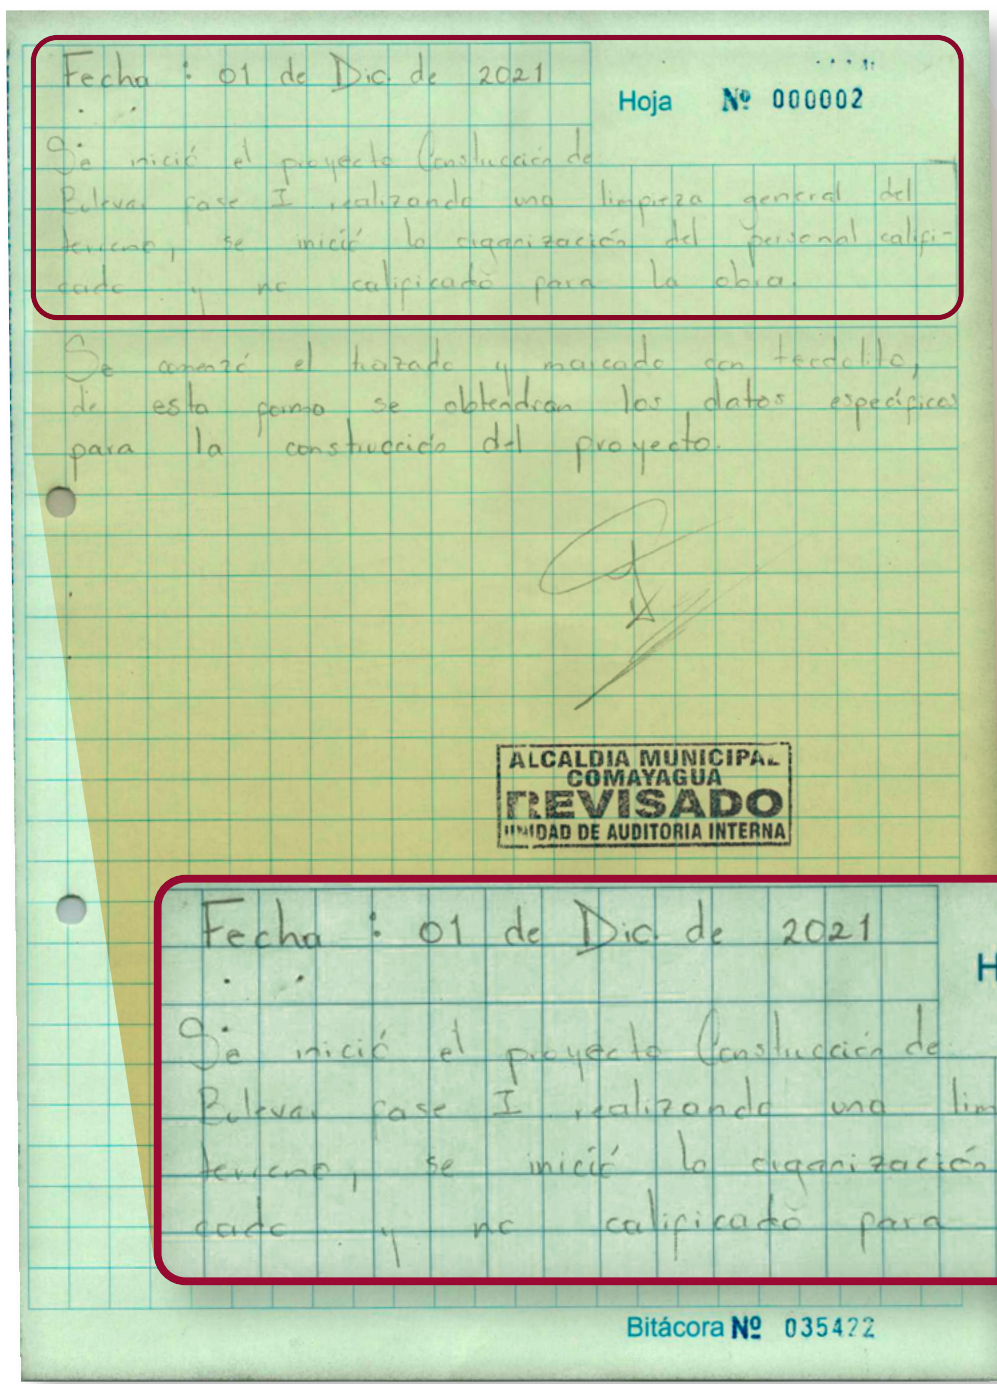 Fecha : 01 de Dic. de 2021
Hoja Nº 000002
Se inició el proyecto Construcción de
Bulevar fase I realizando una limpieza general del
terreno, se inició la organización del personal califi-
cado y no calificado para la obra.
Se comenzó el trazado y marcado con teodolito,
de esta forma se obtendran los datos específicos
para la construcción del proyecto.
ALCALDIA MUNICIPAL
COMAYAGUA
REVISADO
UNIDAD DE AUDITORIA INTERNA
Fecha : 01 de Dic. de 2021
H
Se inició el proyecto Construcción de
Bulevar fase I realizando una lim
terreno, se inició la organización
cado y no calificado para
Bitácora Nº 035422